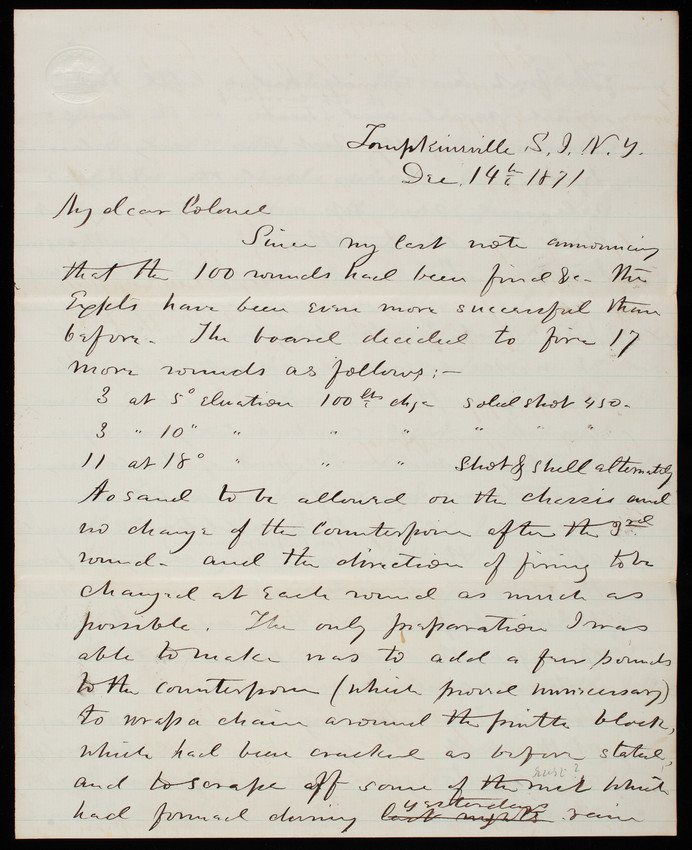 Tompkinsville S. I. N. Y.
Dec. 14th 1871
My dear Colonel
Since my last note announcing
that the 100 rounds had been fired &c. the
Expts have been even more successful than
before. The board decided to fire 17
more rounds as follows:—
3 at 5° elevation 100 lbs chge solid shot 450.
3 " 10° " " " " " "
11 at 18° " " " Shot & shell alternately
No sand to be allowed on the chassis and
no change of the Counterpoise after the 3rd
round. and the direction of firing to be
changed at each round as much as
possible. The only preparation I was
able to make was to add a few pounds
to the counterpoise (which proved unnecessary)
to wrap a chain around the pintle block,
which had been cracked as before stated,
and to scrape off some of the rust which
rust?
had formed during last nights yesterdays rain